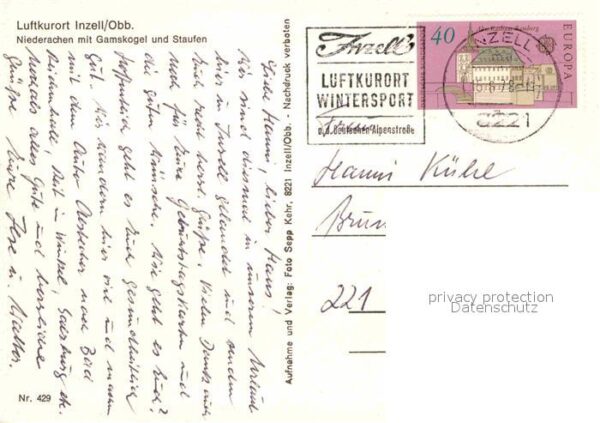 Luftkurort Inzell/Obb.
Niederachen mit Gamskogel und Staufen
Liebe Hanni, lieber Hans!
Wir sind diesmal in unserem Urlaub
hier in Inzell gelandet und senden
Euch recht herzl. Grüße. Vielen Dank auch
noch für Eure Geburtstagskarten und
die guten Wünsche. Wie geht es Euch?
Hoffentlich geht es Euch gesundheitlich
gut. Wir wandern hier viel und machen
mit dem Auto Abstecher nach Bad
Reichenhall, Reit im Winkel, Salzburg etc.
nochmals alles Gute und herzliche
Grüße Eure Ilse u. Walter.
Nr. 429
Aufnahme und Verlag: Foto Sepp Kehr, 8221 Inzell/Obb. - Nachdruck verboten
Inzell
LUFTKURORT
WINTERSPORT
a.d. deutschen Alpenstraße
INZELL
8221
40
EUROPA
Hanni Kühl
Brun
221
privacy protection
Datenschutz